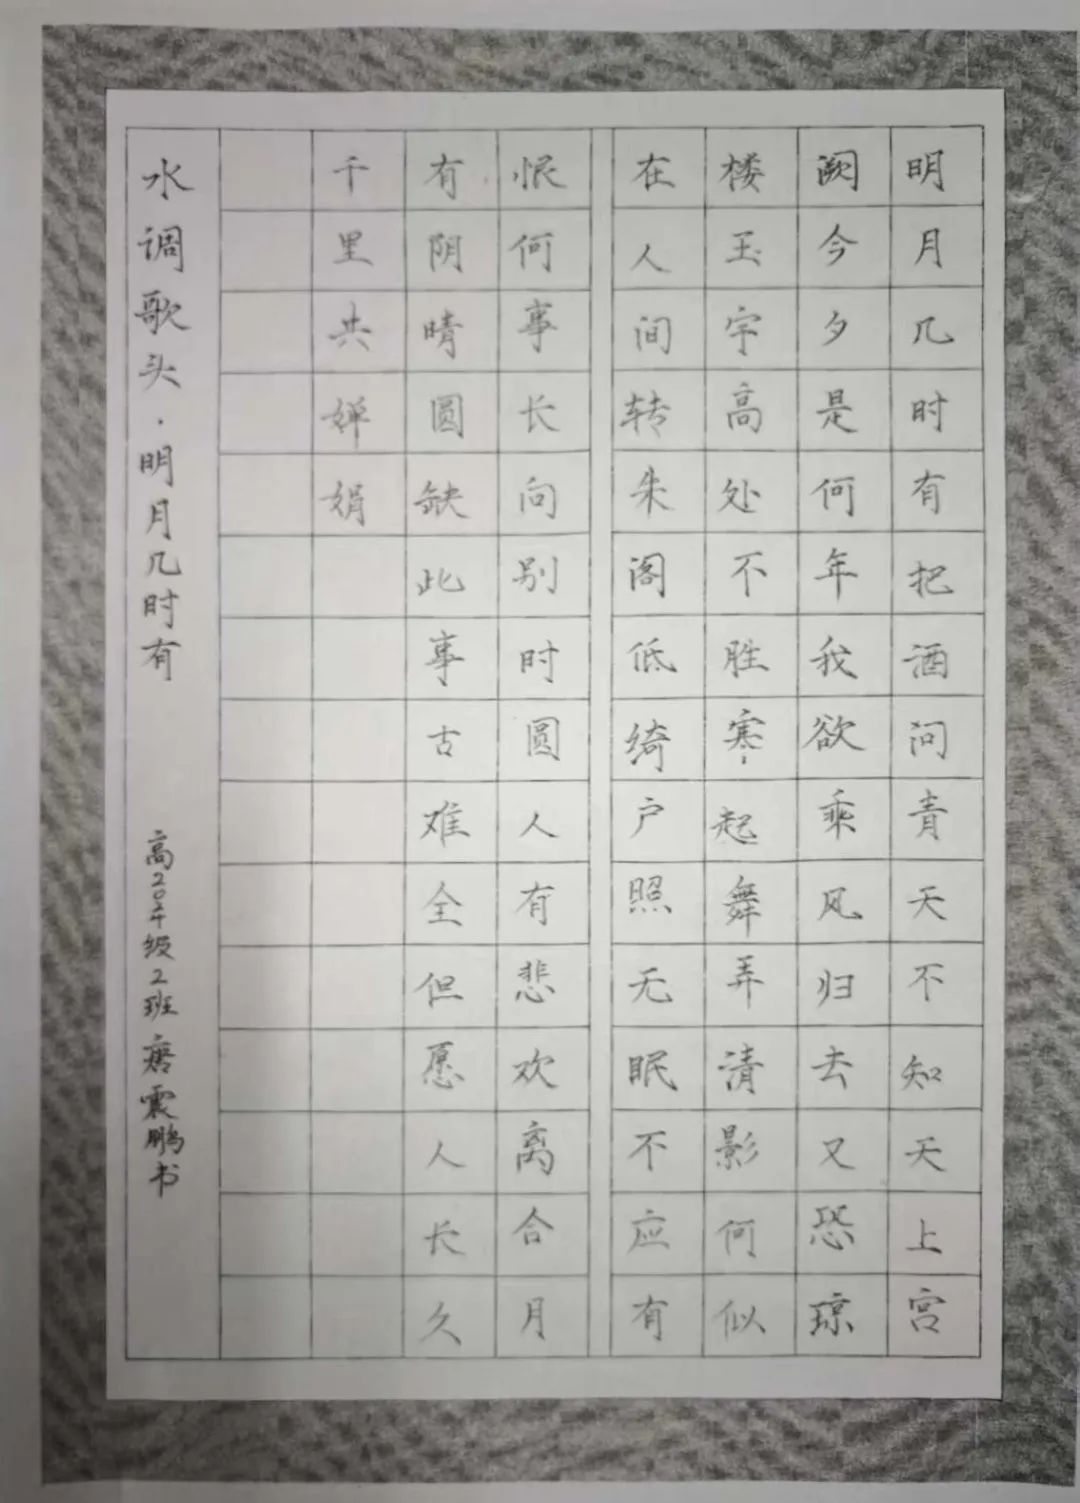 明月几时有把酒问青天不知天上宫
阙今夕是何年我欲乘风归去又恐琼
楼玉宇高处不胜寒起舞弄清影何似
在人间转朱阁低绮户照无眠不应有
恨何事长向别时圆人有悲欢离合月
有阴晴圆缺此事古难全但愿人长久
千里共婵娟
水调歌头·明月几时有
高2024级2班 震鹏书